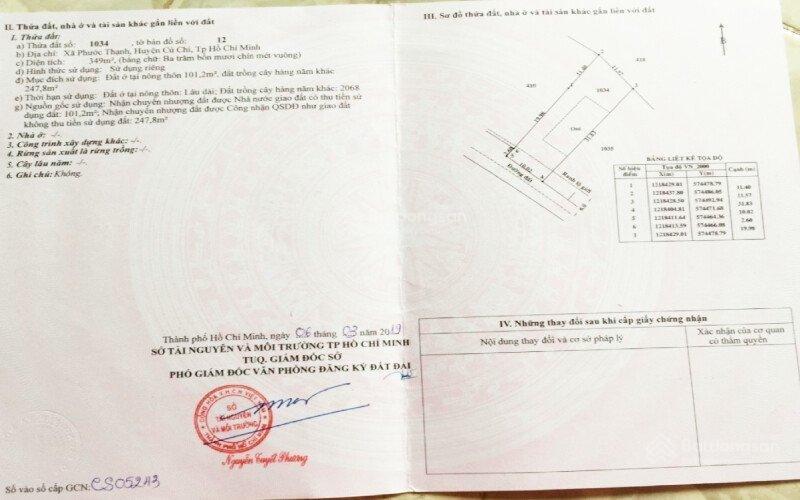 II. Thửa đất, nhà ở và tài sản khác gắn liền với đất
1. Thửa đất:
a) Thửa đất số: 1034, tờ bản đồ số: 12
b) Địa chỉ: Xã Phước Thạnh, Huyện Củ Chi, Tp Hồ Chí Minh
c) Diện tích: 349m², (bằng chữ: Ba trăm bốn mươi chín mét vuông)
d) Hình thức sử dụng: Sử dụng riêng
đ) Mục đích sử dụng: Đất ở tại nông thôn 101,2m², đất trồng cây hàng năm khác
247,8m²
e) Thời hạn sử dụng: Đất ở tại nông thôn: Lâu dài; Đất trồng cây hàng năm khác: 2068
g) Nguồn gốc sử dụng: Nhận chuyển nhượng đất được Nhà nước giao đất có thu tiền sử
dụng đất: 101,2m²; Nhận chuyển nhượng đất được Công nhận QSDĐ như giao đất
không thu tiền sử dụng đất: 247,8m²
2. Nhà ở: -/-
3. Công trình xây dựng khác: -/-
4. Rừng sản xuất là rừng trồng: -/-
5. Cây lâu năm: -/-
6. Ghi chú: Không.
Thành phố Hồ Chí Minh, ngày 06 tháng 03 năm 2019
SỞ TÀI NGUYÊN VÀ MÔI TRƯỜNG TP HỒ CHÍ MINH
TUQ. GIÁM ĐỐC SỞ
PHÓ GIÁM ĐỐC VĂN PHÒNG ĐĂNG KÝ ĐẤT ĐAI
SỞ
TÀI NGUYÊN
VÀ MÔI TRƯỜNG
Nguyễn Tuyết Phương
Số vào sổ cấp GCN: CS05243
III. Sơ đồ thửa đất, nhà ở và tài sản khác gắn liền với đất
B
2
11.40
11.57
410
1034
3
19.98
Ont
31.83
1035
2.60
10.02
Đường đất
Ranh lộ giới
BẢNG LIỆT KÊ TỌA ĐỘ
Số hiệu điểm Tọa độ VN_2000 Cạnh (m)
X(m) Y(m)
1 1218429.01 574478.79
11.40
2 1218437.80 574486.05
11.57
3 1218428.50 574492.94
31.83
4 1218404.81 574471.68
10.02
5 1218411.64 574464.36
2.60
6 1218413.59 574466.08
19.98
1 1218429.01 574478.79
IV. Những thay đổi sau khi cấp giấy chứng nhận
Nội dung thay đổi và cơ sở pháp lý
Xác nhận của cơ quan
có thẩm quyền